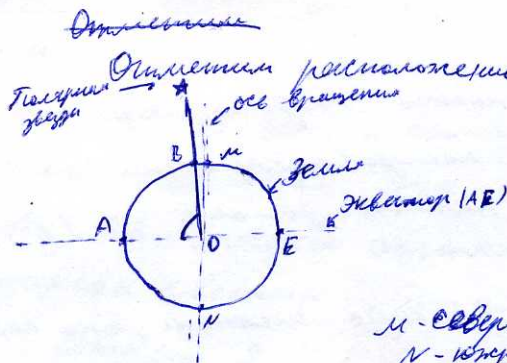 Отметим
Отметим расположение
Полярная звезда
ось вращения
B
M
Земля
Экватор (AE)
A
O
E
N
M - север
N - юж